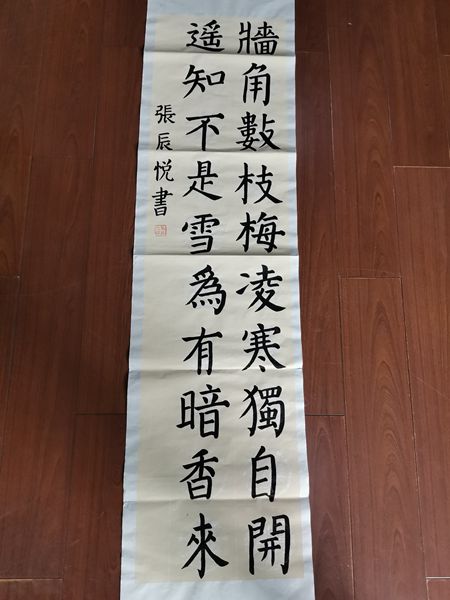 牆角數枝梅凌寒獨自開
遥知不是雪為有暗香來
張辰悦書